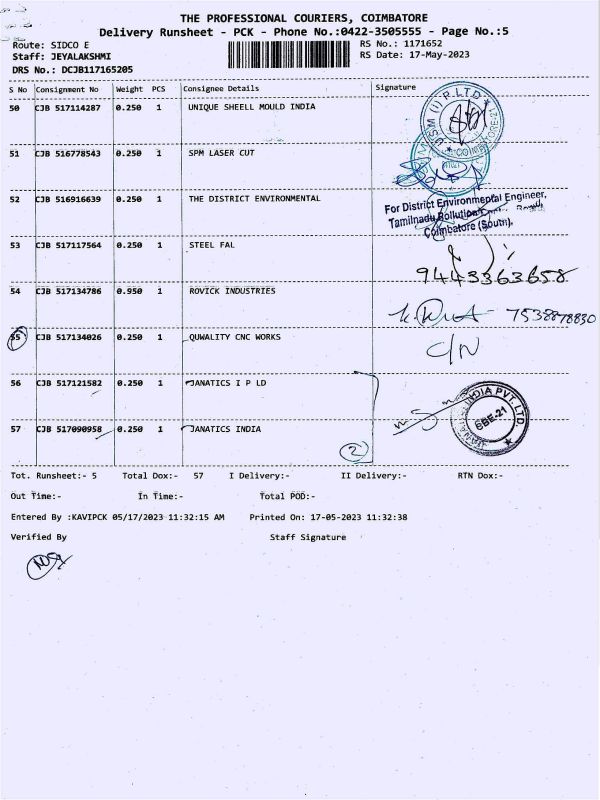 THE PROFESSIONAL COURIERS, COIMBATORE
Delivery Runsheet - PCK - Phone No.:0422-3505555 - Page No.:5
Route: SIDCO E
RS No.: 1171652
Staff: JEYALAKSHMI
RS Date: 17-May-2023
DRS No.: DCJB117165205
S No Consignment No Weight PCS Consignee Details Signature
50 CJB 517114287 0.250 1 UNIQUE SHEELL MOULD INDIA
51 CJB 516778543 0.250 1 SPM LASER CUT
52 CJB 516916639 0.250 1 THE DISTRICT ENVIRONMENTAL
For District Environmental Engineer,
Tamilnadu Pollution
Coimbatore (South).
53 CJB 517117564 0.250 1 STEEL FAL
9443363658
54 CJB 517134786 0.950 1 ROVICK INDUSTRIES
7538878830
55 CJB 517134026 0.250 1 QUWALITY CNC WORKS
C/N
56 CJB 517121582 0.250 1 JANATICS I P LD
INDIA PVT. LTD.
57 CJB 517090958 0.250 1 JANATICS INDIA
2
Tot. Runsheet:- 5 Total Dox:- 57 I Delivery:- II Delivery:- RTN Dox:-
Out Time:- In Time:- Total POD:-
Entered By :KAVIPCK 05/17/2023 11:32:15 AM Printed On: 17-05-2023 11:32:38
Verified By Staff Signature